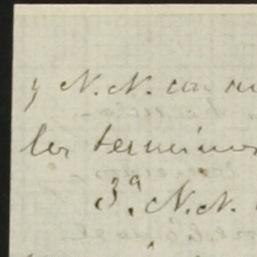 y N.N. con
los terminos
3ª. N.N.